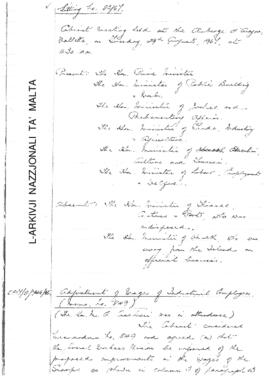 Sitting No. 82/67.
Cabinet meeting held at the Auberge d'Aragon,
Valletta on Tuesday 29th August, 1967, at
Present: The Hon. Prime Minister
The Hon. Minister of Public Building
& Works.
The Hon. Minister of Justice and
Parliamentary Affairs.
The Hon. Minister of Trade, Industry
& Agriculture
The Hon. Minister of
Culture and Tourism.
The Hon. Minister of Labour, Employment
& Welfare.
Absent: The Hon. Minister of Finance,
Customs & Ports who was
indisposed.
The Hon. Minister of Health who was
away from the Island on
official business.
L-ARKIVJI NAZZJONALI TA' MALTA
Adjustment of Wages of Industrial Employees.
(Memo. No. 849)
(The was in attendance)
The Cabinet considered
Memorandum No. 849 and agreed (a) that
the should be informed of the
proposed improvements in the wages of the
Groups as shown in column of paragraph